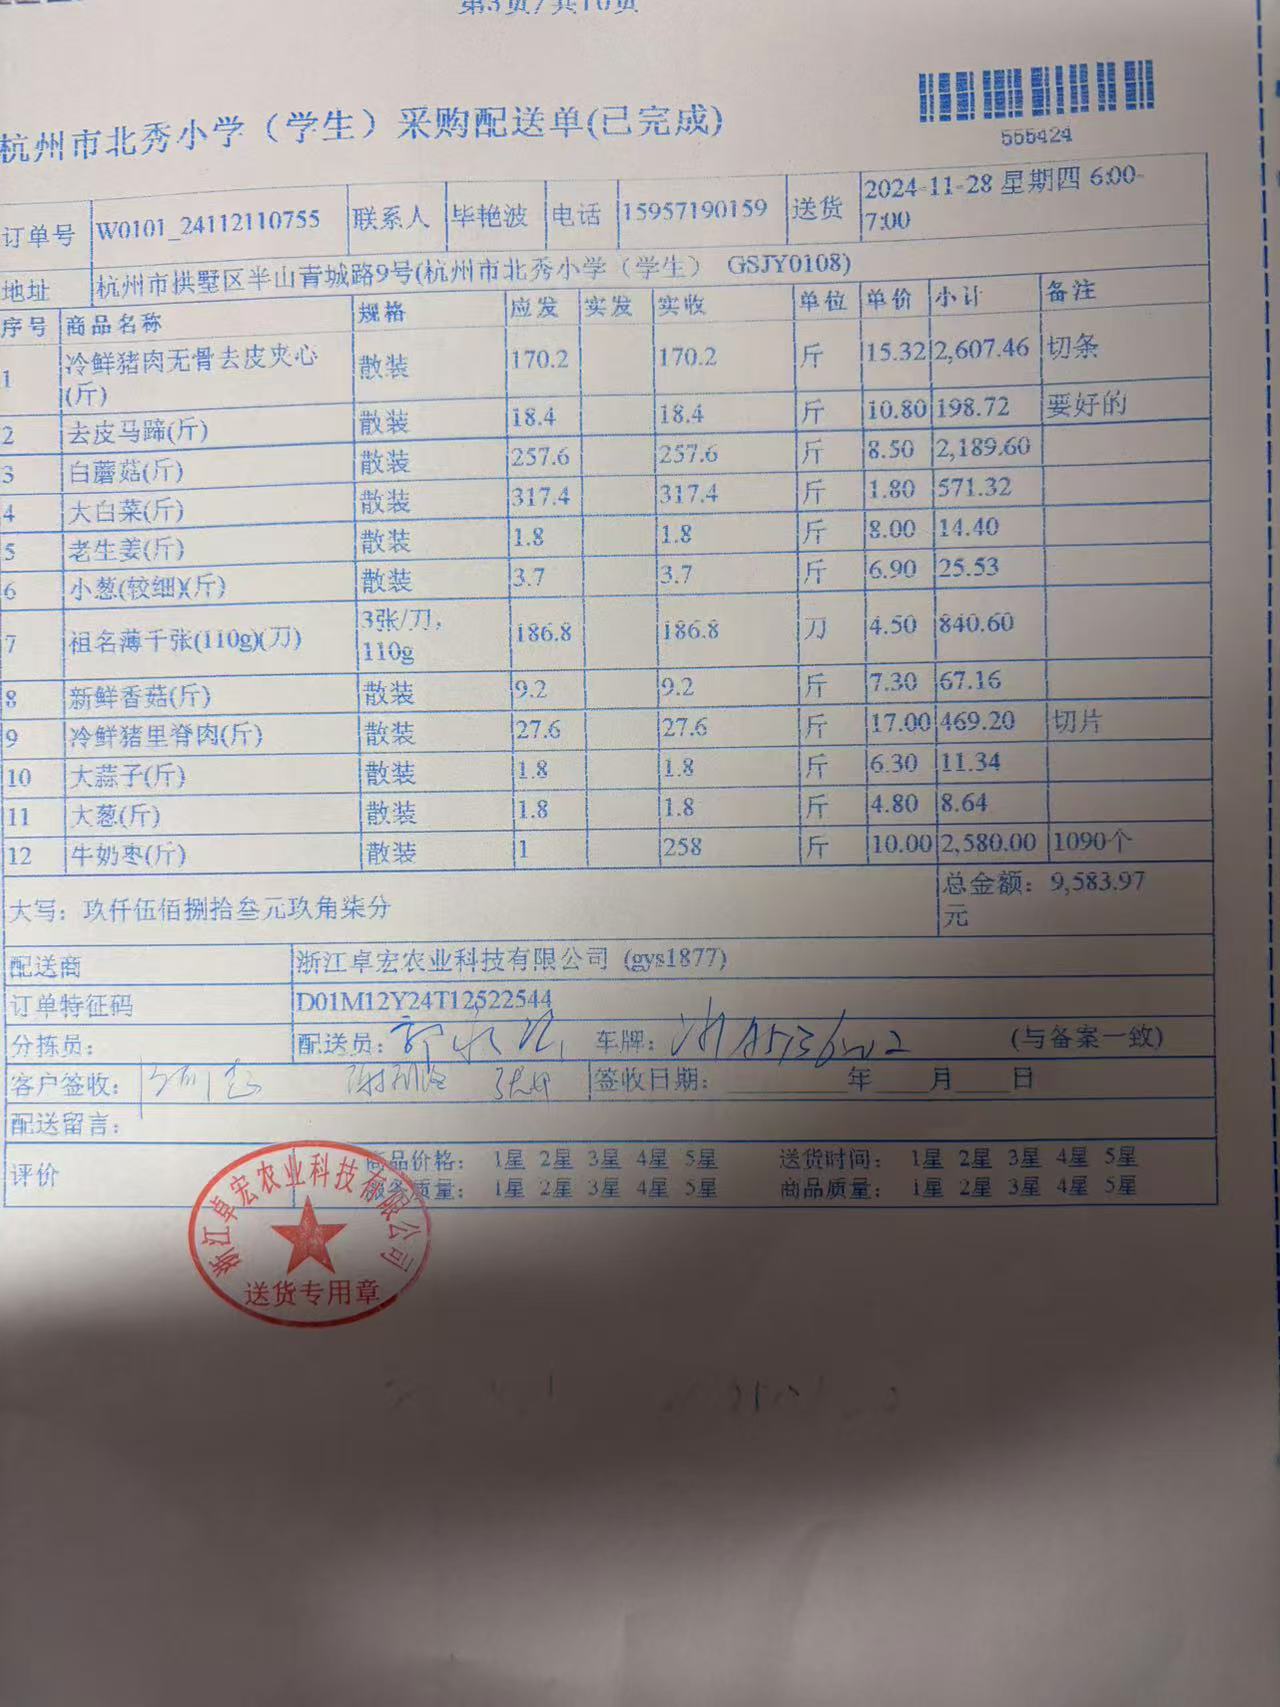 第3页/共10页
555424
杭州市北秀小学（学生）采购配送单(已完成)
订单号 W0101_24112110755 联系人 毕艳波 电话 15957190159 送货 2024-11-28 星期四 6:00-
7:00
地址 杭州市拱墅区半山青城路9号(杭州市北秀小学（学生） GSJY0108)
序号 商品名称 规格 应发 实发 实收 单位 单价 小计 备注
1 冷鲜猪肉无骨去皮夹心
(斤) 散装 170.2 170.2 斤 15.32 2,607.46 切条
2 去皮马蹄(斤) 散装 18.4 18.4 斤 10.80 198.72 要好的
3 白蘑菇(斤) 散装 257.6 257.6 斤 8.50 2,189.60
4 大白菜(斤) 散装 317.4 317.4 斤 1.80 571.32
5 老生姜(斤) 散装 1.8 1.8 斤 8.00 14.40
6 小葱(较细)(斤) 散装 3.7 3.7 斤 6.90 25.53
7 祖名薄千张(110g)(刀) 3张/刀，
110g 186.8 186.8 刀 4.50 840.60
8 新鲜香菇(斤) 散装 9.2 9.2 斤 7.30 67.16
9 冷鲜猪里脊肉(斤) 散装 27.6 27.6 斤 17.00 469.20 切片
10 大蒜子(斤) 散装 1.8 1.8 斤 6.30 11.34
11 大葱(斤) 散装 1.8 1.8 斤 4.80 8.64
12 牛奶枣(斤) 散装 1 258 斤 10.00 2,580.00 1090个
大写：玖仟伍佰捌拾叁元玖角柒分 总金额：9,583.97
元
配送商 浙江卓宏农业科技有限公司 (gys1877)
订单特征码 D01M12Y24T12522544
分拣员： 配送员： 车牌： (与备案一致)
客户签收： 签收日期： 年 月 日
配送留言：
评价 商品价格： 1星 2星 3星 4星 5星 送货时间： 1星 2星 3星 4星 5星
服务质量： 1星 2星 3星 4星 5星 商品质量： 1星 2星 3星 4星 5星
浙江卓宏农业科技有限公司
送货专用章